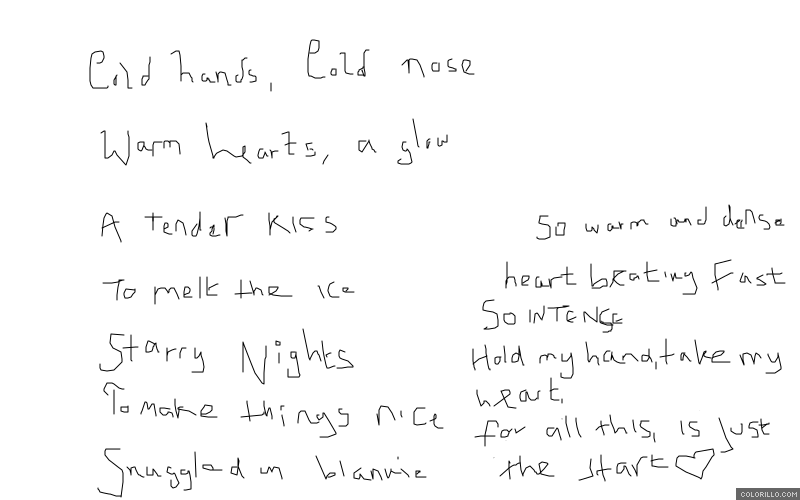 Cold hands, Cold nose
Warm hearts, a glow
A tender kiss
To melt the ice
Starry Nights
To make things nice
Snuggled in blankie
So warm and dense
heart beating Fast
So INTENSE
Hold my hand, take my
heart,
for all this, is just
the start♡
COLORILLO.COM